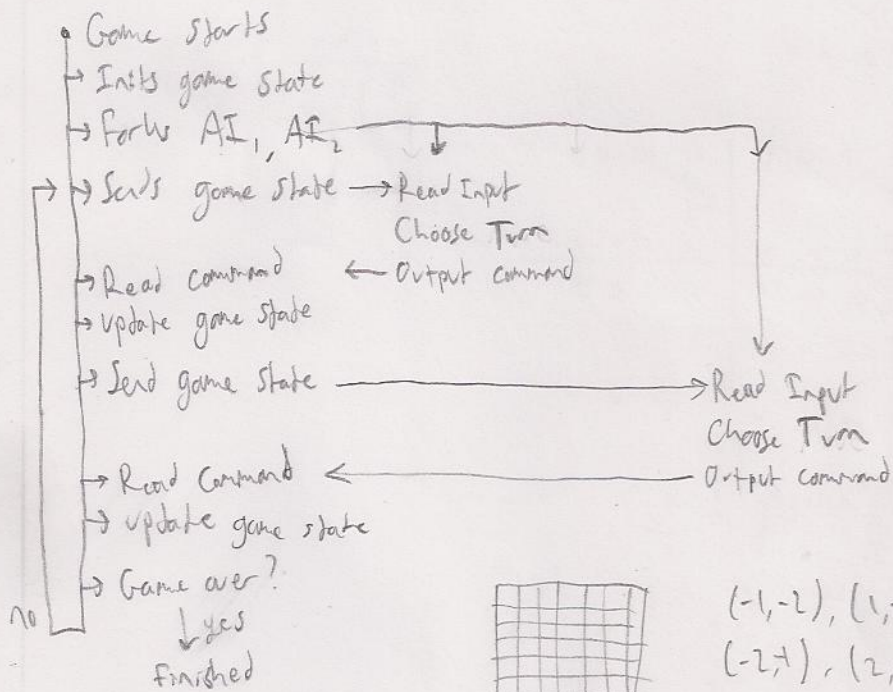 Game starts
Inits game state
Forks AI₁, AI₂
Sends game state → Read Input
Choose Turn
Read command ← Output command
update game state
Send game state → Read Input
Choose Turn
Read Command ← Output command
update game state
Game over?
no
yes
finished
(-1,-2), (1,
(-2,1), (2,